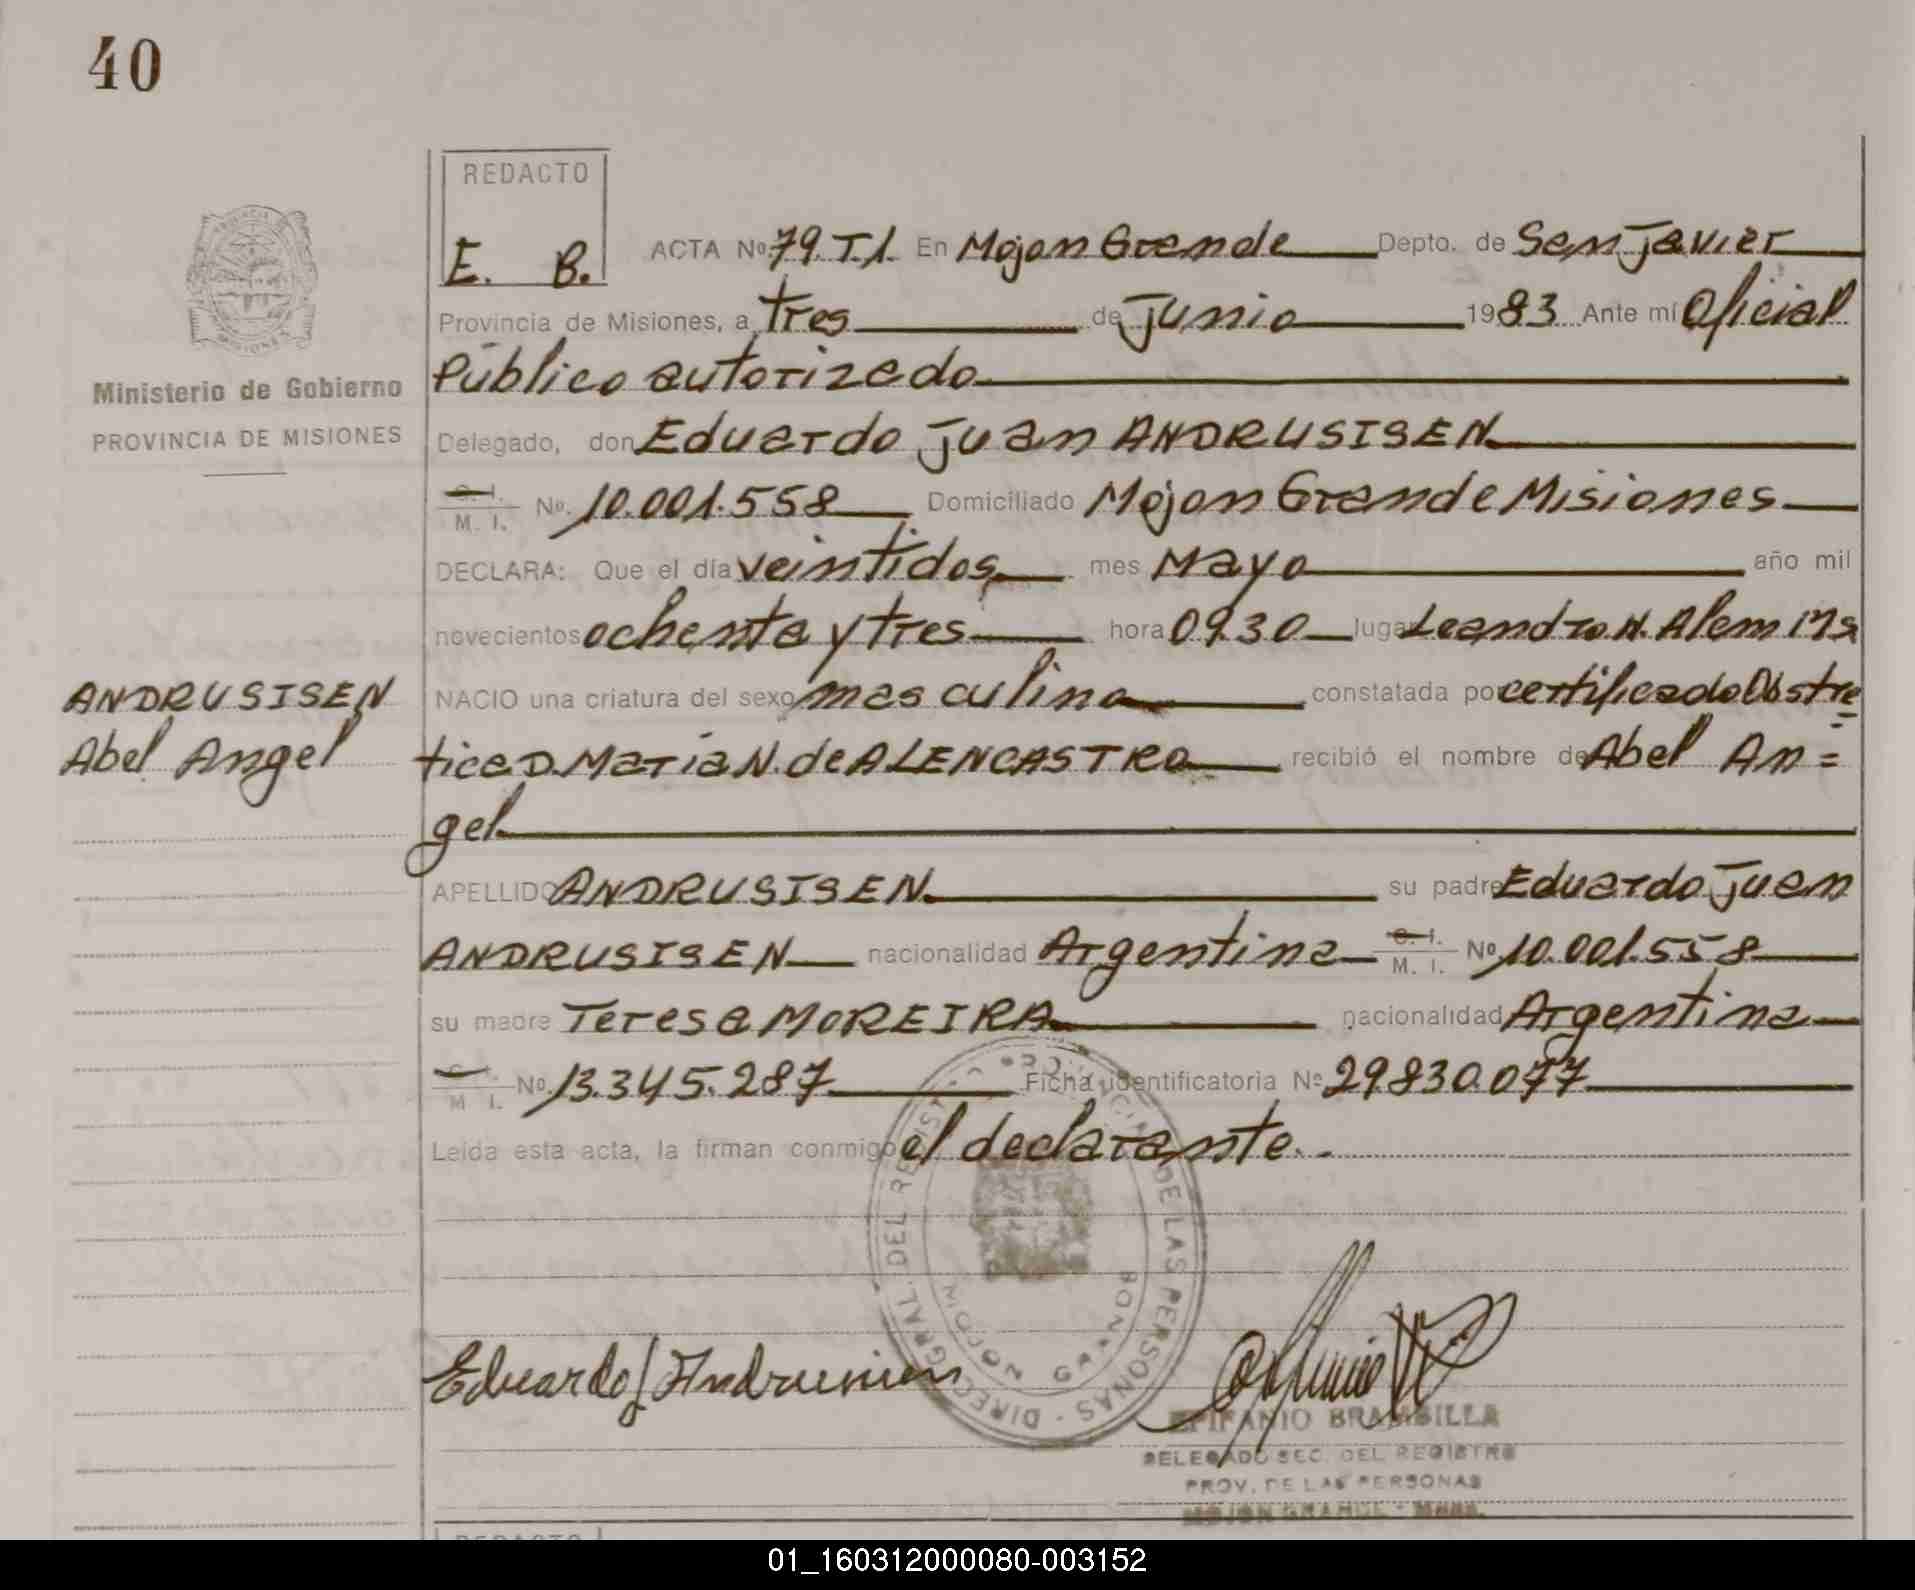 40
REDACTO
E. B.
ACTA Nº 79.T.1. En Mojon Grande Depto. de San Javier
Provincia de Misiones, a tres de Junio 1983 Ante mí Oficial
Público autorizado
Ministerio de Gobierno
PROVINCIA DE MISIONES
Delegado, don Eduardo Juan ANDRUSISEN
C. I.
M. I. Nº. 10.001.558 Domiciliado Mojon Grande Misiones
DECLARA: Que el día veintidos mes Mayo año mil
novecientos ochenta y tres hora 09.30 lugar Leandro N. Alem Ms
NACIO una criatura del sexo masculino constatada por certificado Obstre=
ANDRUSISEN
Abel Angel
tica D. Maria N. de ALENCASTRO recibió el nombre de Abel An=
gel
APELLIDO ANDRUSISEN su padre Eduardo Juan
ANDRUSISEN nacionalidad Argentina C. I. M. I. Nº 10.001.558
su madre Teresa MOREIRA nacionalidad Argentina
C. I.
M I. Nº 13.345.287 Ficha identificatoria Nº 29.830.077
Leída esta acta, la firman conmigo el declarante.
DIREC. GRAL. DEL REGISTRO PROVINCIAL DE LAS PERSONAS
MOJON GRANDE
Eduardo J Andrusisen
EPIFANIO BRAMBILLA
DELEGADO SEC. DEL REGISTRO
PROV. DE LAS PERSONAS
MOJON GRANDE - Mnes.
REDACTO
01_160312000080-003152